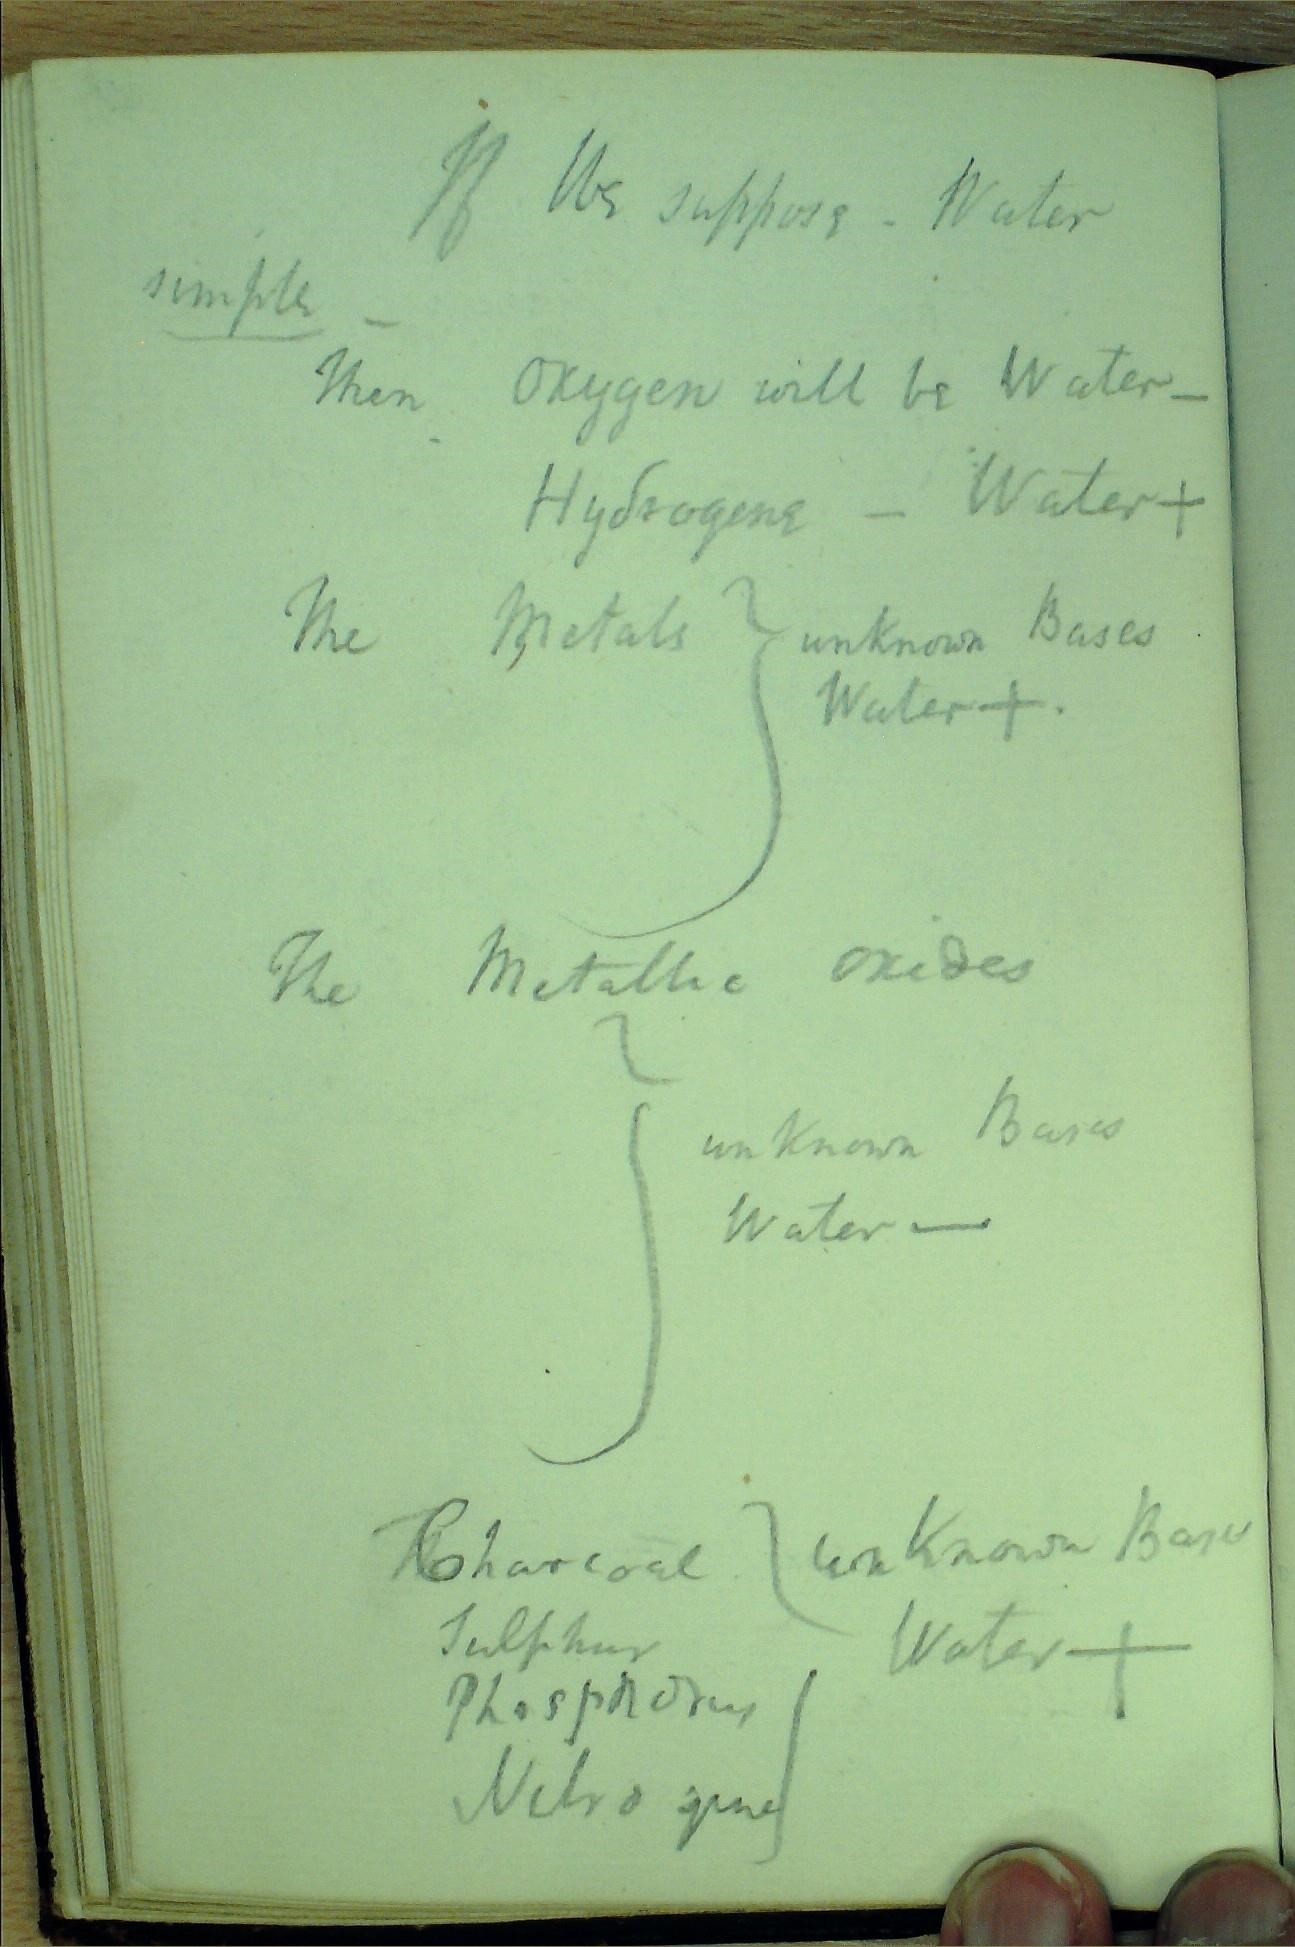 If We suppose - Water
simple -
Then Oxygen will be Water -
Hydrogene - Water +
The Metals } unknown Bases
Water +.
The Metallic oxides
} unknown Bases
Water —
Charcoal } unknown Bases
Sulphur Water +
Phosphorus
Nitrogene